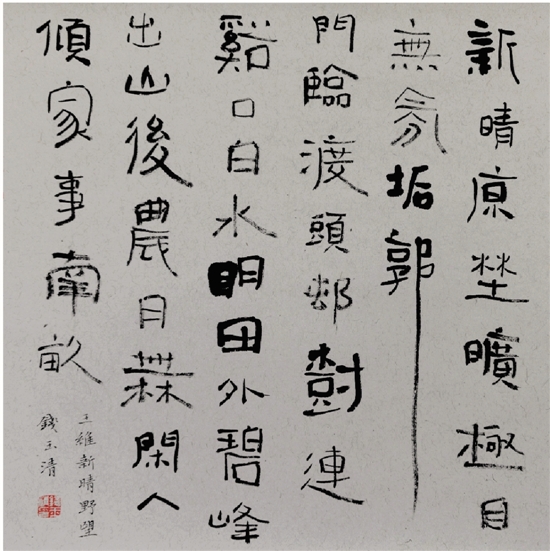 新晴原埜曠極目
無氛垢郭
門臨渡頭邨樹連
谿口白水明田外碧峰
出山後農月無閑人
傾家事南畝
王維新晴野望
錢玉清